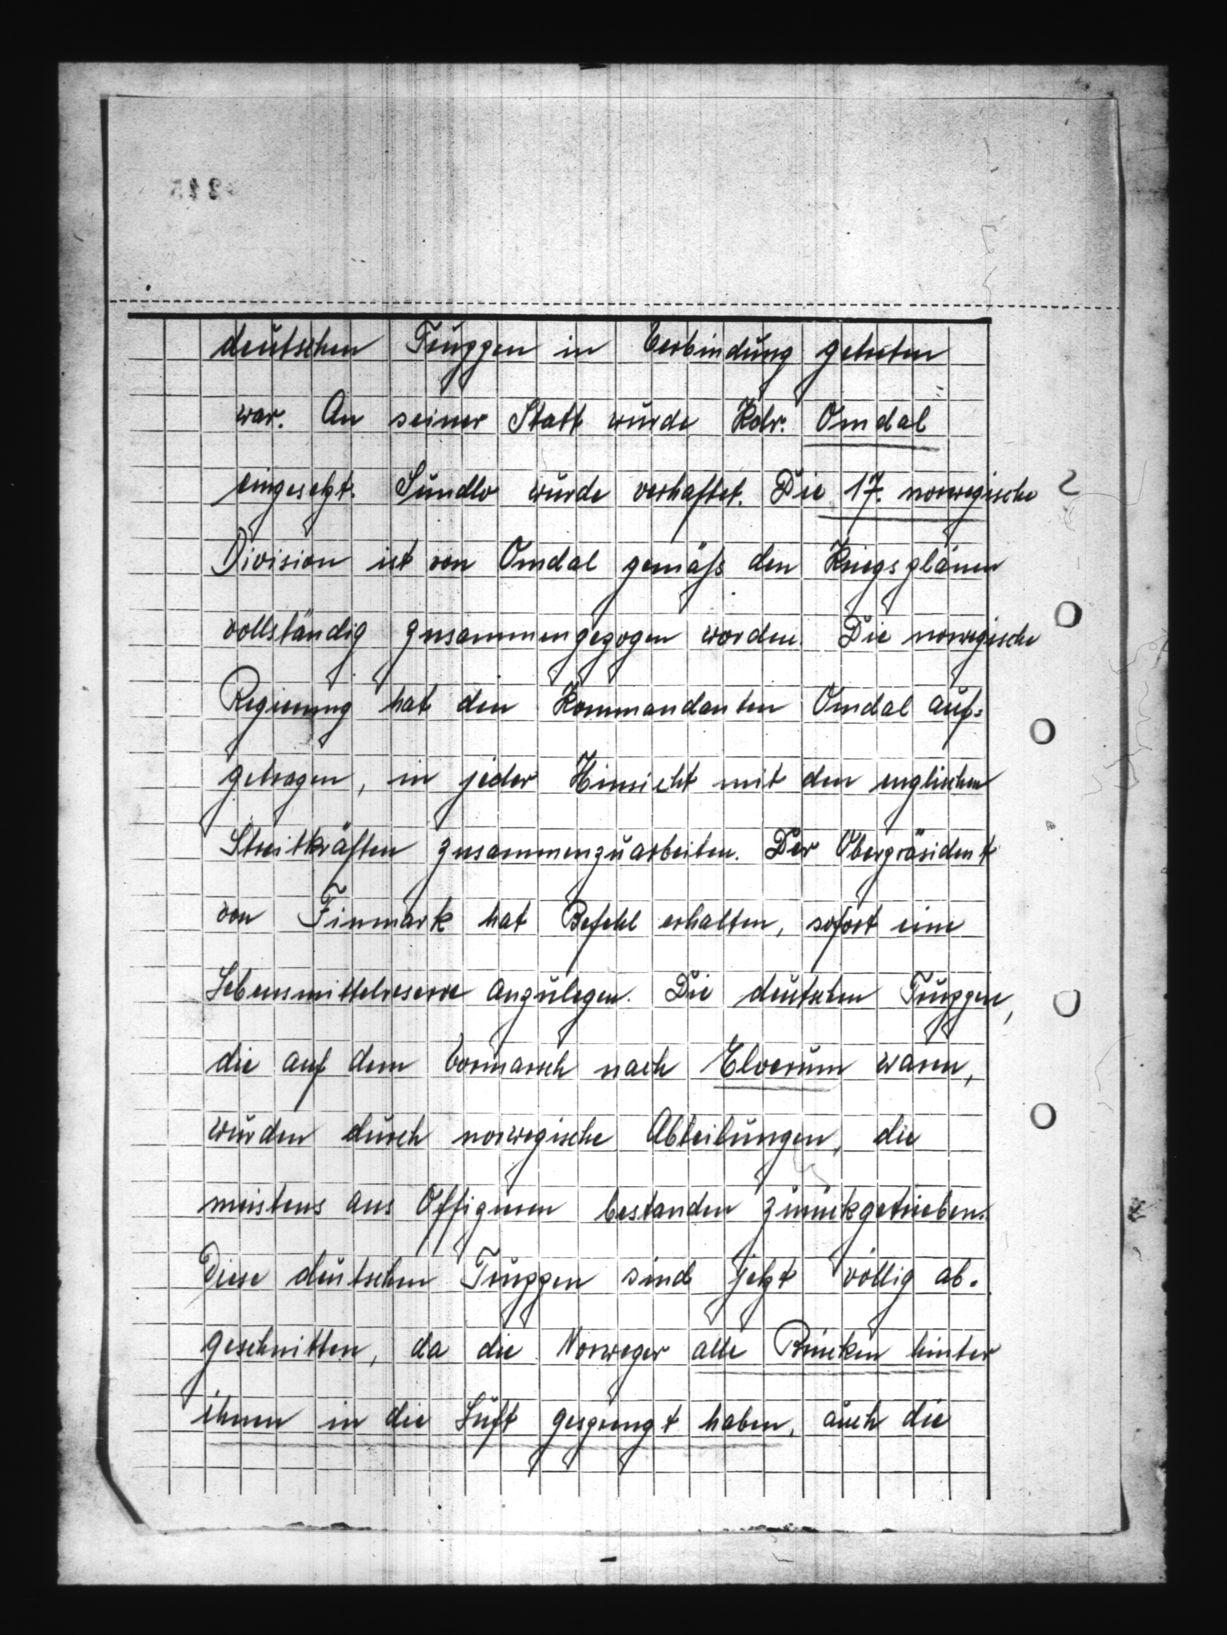 deutschen Truppen in Verbindung getreten
war. An seiner Statt wurde Kdr. Omdal
eingesetzt. Sundlo wurde verhaftet. Die 17. norwegische
Division ist von Omdal gemäß den Kriegsplänen
vollständig zusammengezogen worden. Die norwegische
Regierung hat den Kommandanten Omdal auf=
getragen, in jeder Hinsicht mit den englischen
Streitkräften zusammenzuarbeiten. Der Oberpräsident
von Finmark hat Befehl erhalten, sofort eine
Lebensmittelreserve anzulegen. Die deutschen Truppen,
die auf dem Vormarsch nach Elverum waren,
wurden durch norwegische Abteilungen, die
meistens aus Offizieren bestanden zurückgetrieben.
Diese deutschen Truppen sind jetzt völlig ab-
geschnitten, da die Norweger alle Brücken hinter
ihnen in die Luft gesprengt haben, auch die